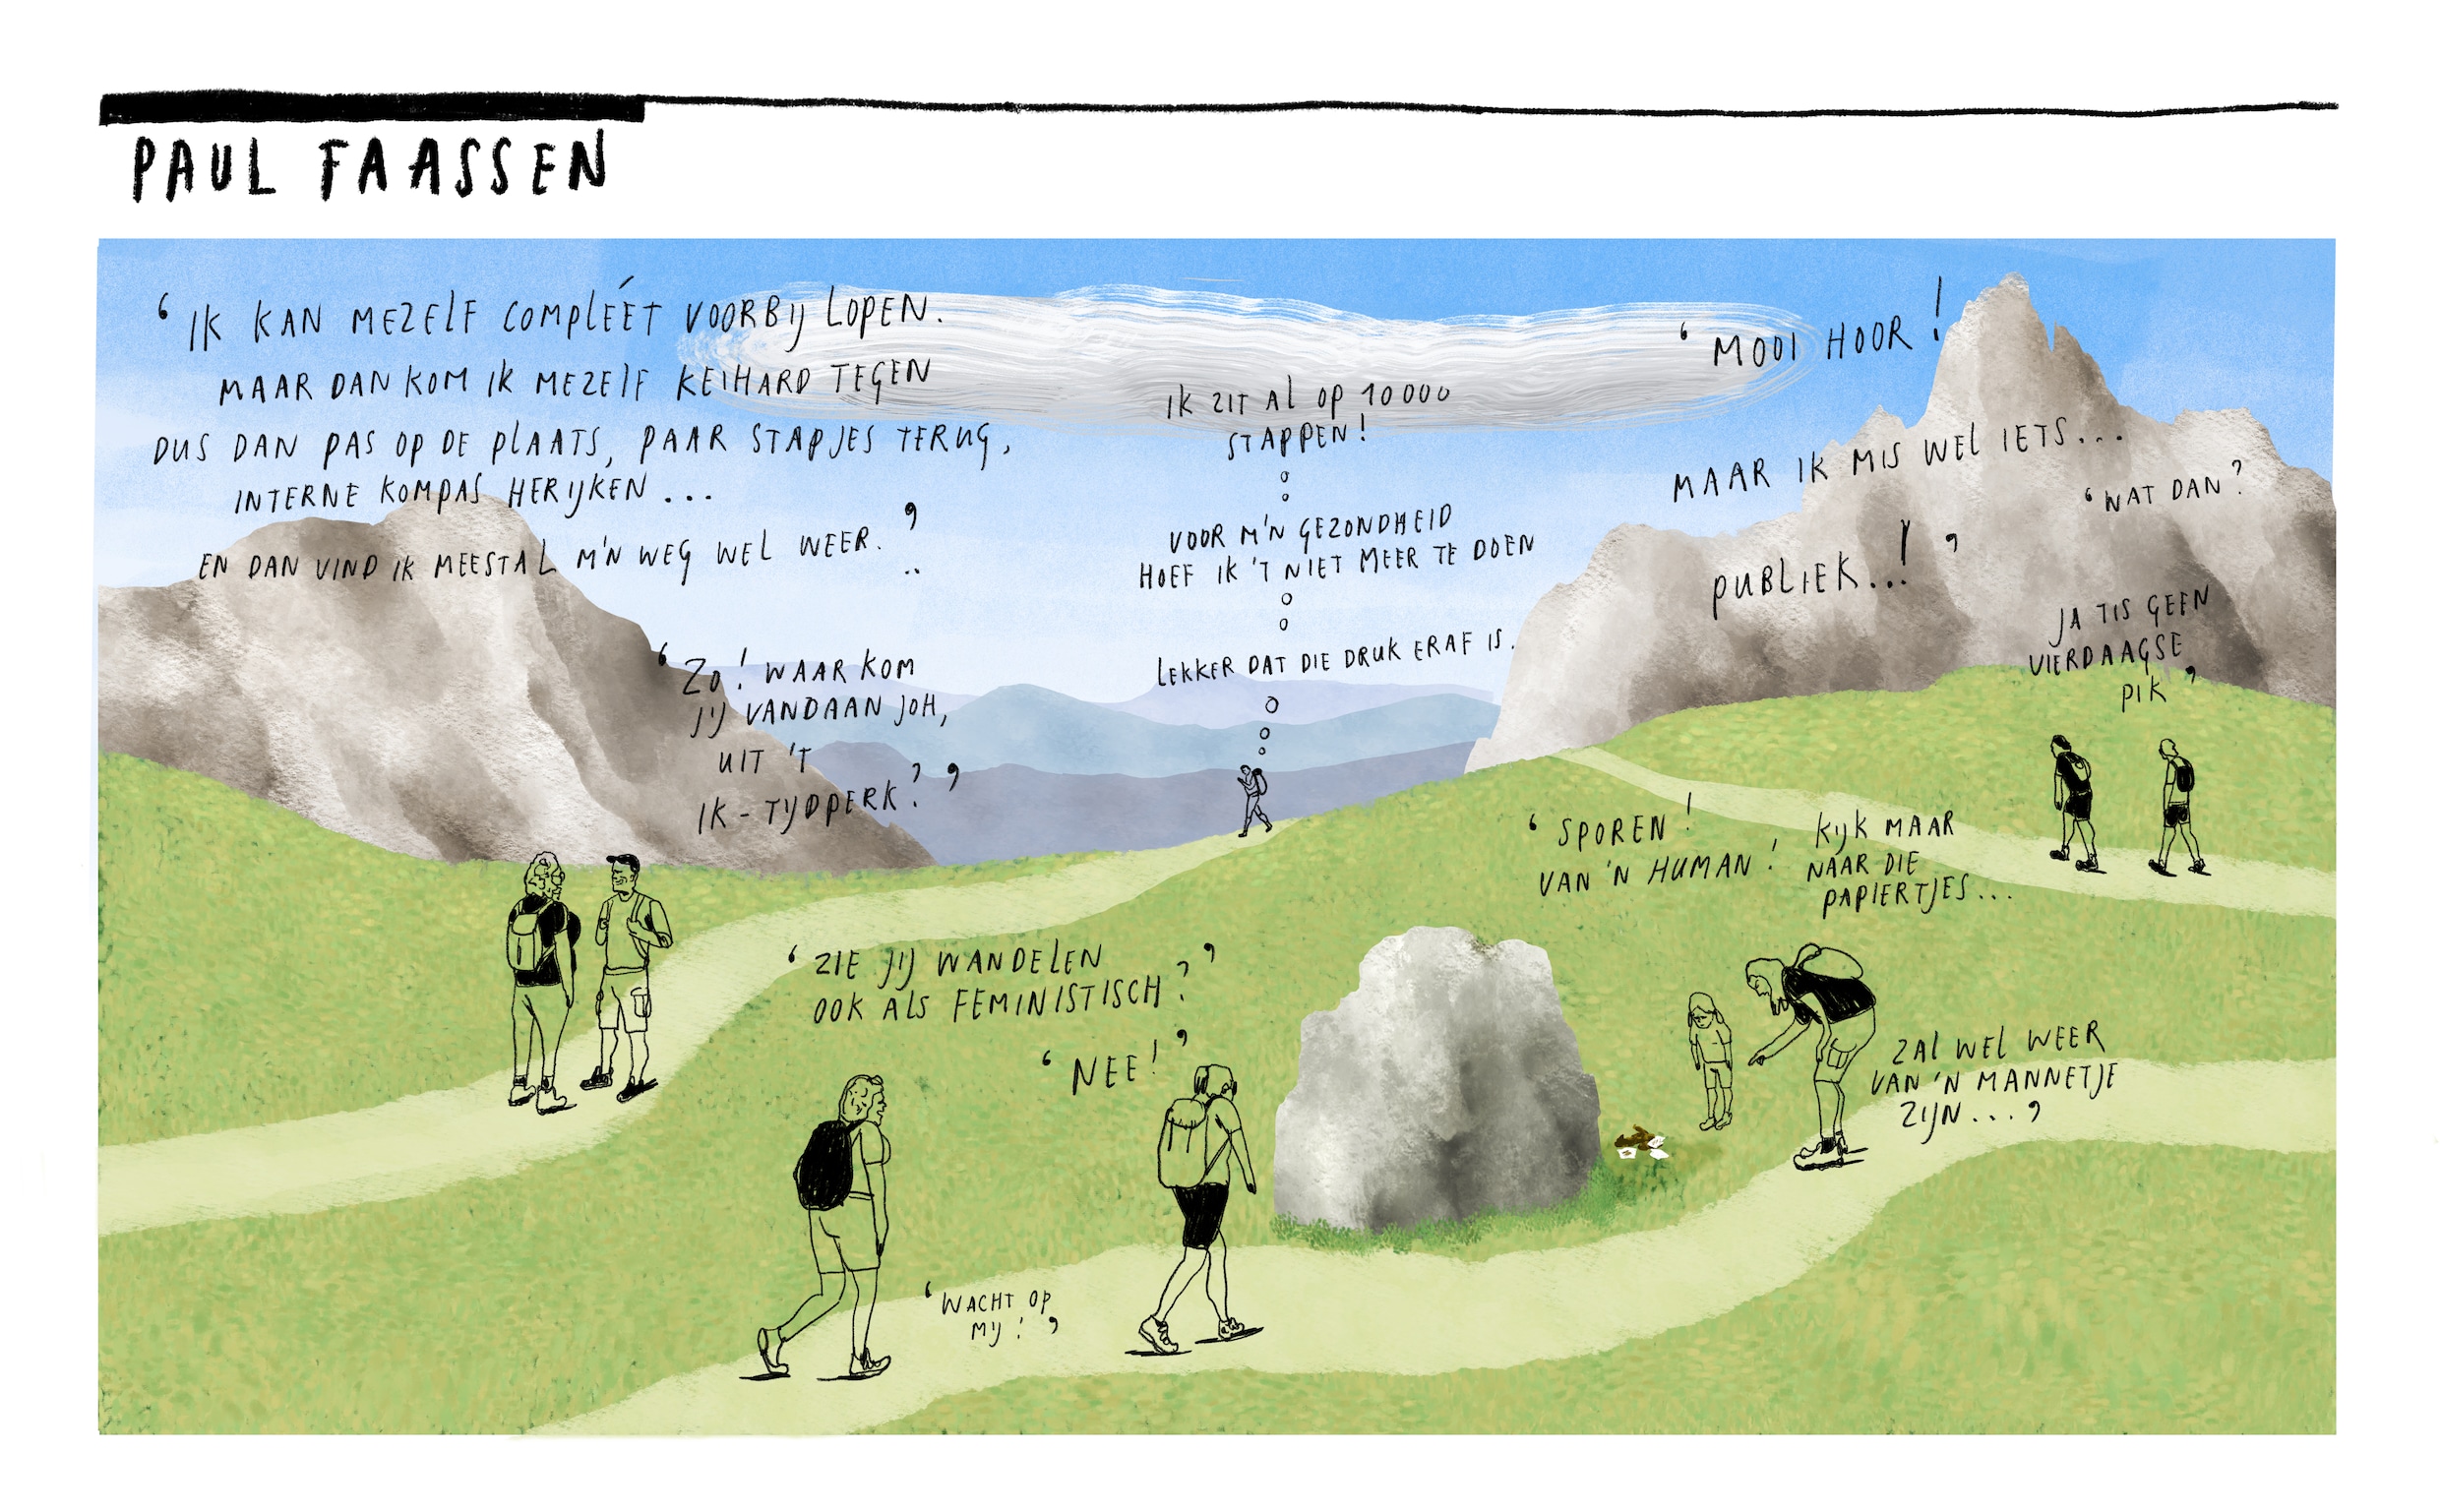 PAUL FAASSEN
‘IK KAN MEZELF COMPLÉÉT VOORBIJ LOPEN.
MAAR DAN KOM IK MEZELF KEIHARD TEGEN
DUS DAN PAS OP DE PLAATS, PAAR STAPJES TERUG,
INTERNE KOMPAS HERIJKEN...
EN DAN VIND IK MEESTAL M'N WEG WEL WEER..’
‘ZO! WAAR KOM
JIJ VANDAAN JOH,
UIT 'T
IK-TIJDPERK?’
IK ZIT AL OP 10000
STAPPEN!
VOOR M'N GEZONDHEID
HOEF IK 'T NIET MEER TE DOEN
LEKKER DAT DIE DRUK ERAF IS.
‘MOOI HOOR!
MAAR IK MIS WEL IETS...
‘WAT DAN?
PUBLIEK..!’
JA TIS GEEN
VIERDAAGSE
PIK’
‘ZIE JIJ WANDELEN
OOK ALS FEMINISTISCH?’
‘NEE!’
‘WACHT OP
MIJ!’
‘SPOREN!
VAN 'N HUMAN!
KIJK MAAR
NAAR DIE
PAPIERTJES...
ZAL WEL WEER
VAN 'N MANNETJE
ZIJN...’